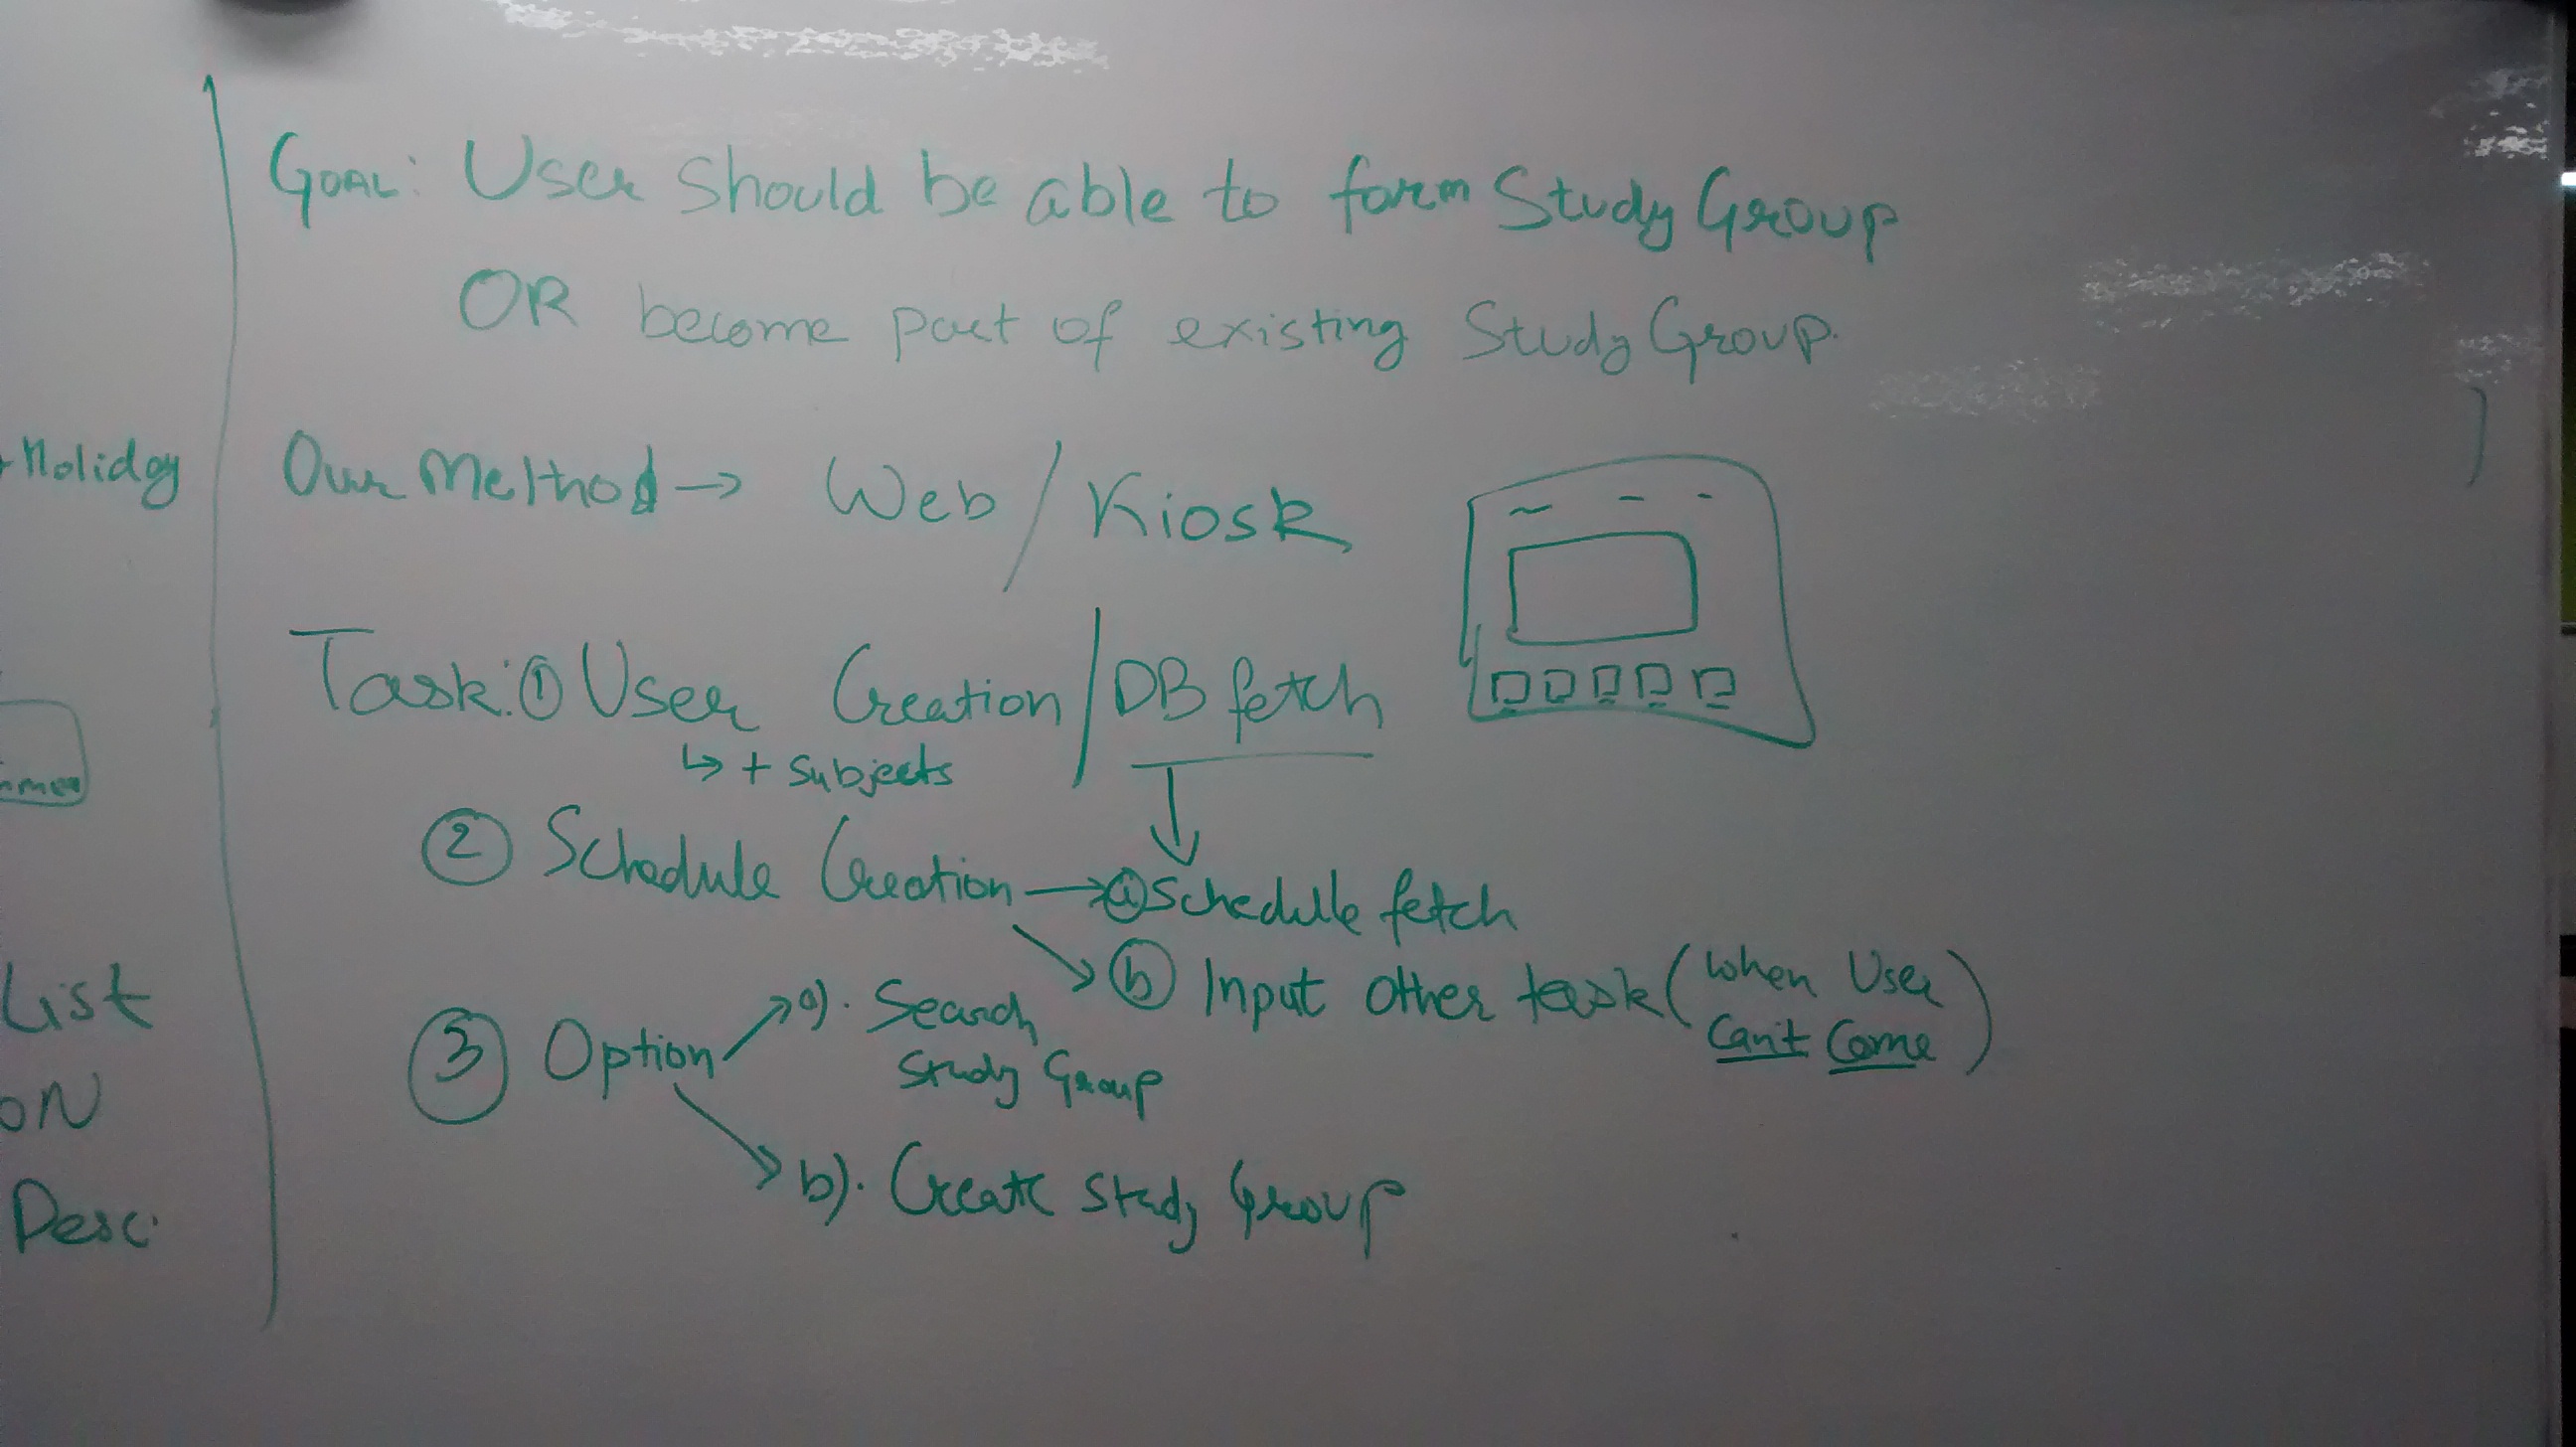 GOAL: User should be able to form Study Group
OR become part of existing Study Group.
Holiday
Our Melthod → Web / Kiosk
Task: ① User Creation / DB fetch
↳ + Subjects
② Schedule Creation → ⓐ Schedule fetch
ⓑ Input other task (when User
can't Come)
③ Option
a). Search
Study Group
b). Create Study Group
List
ON
Desc.